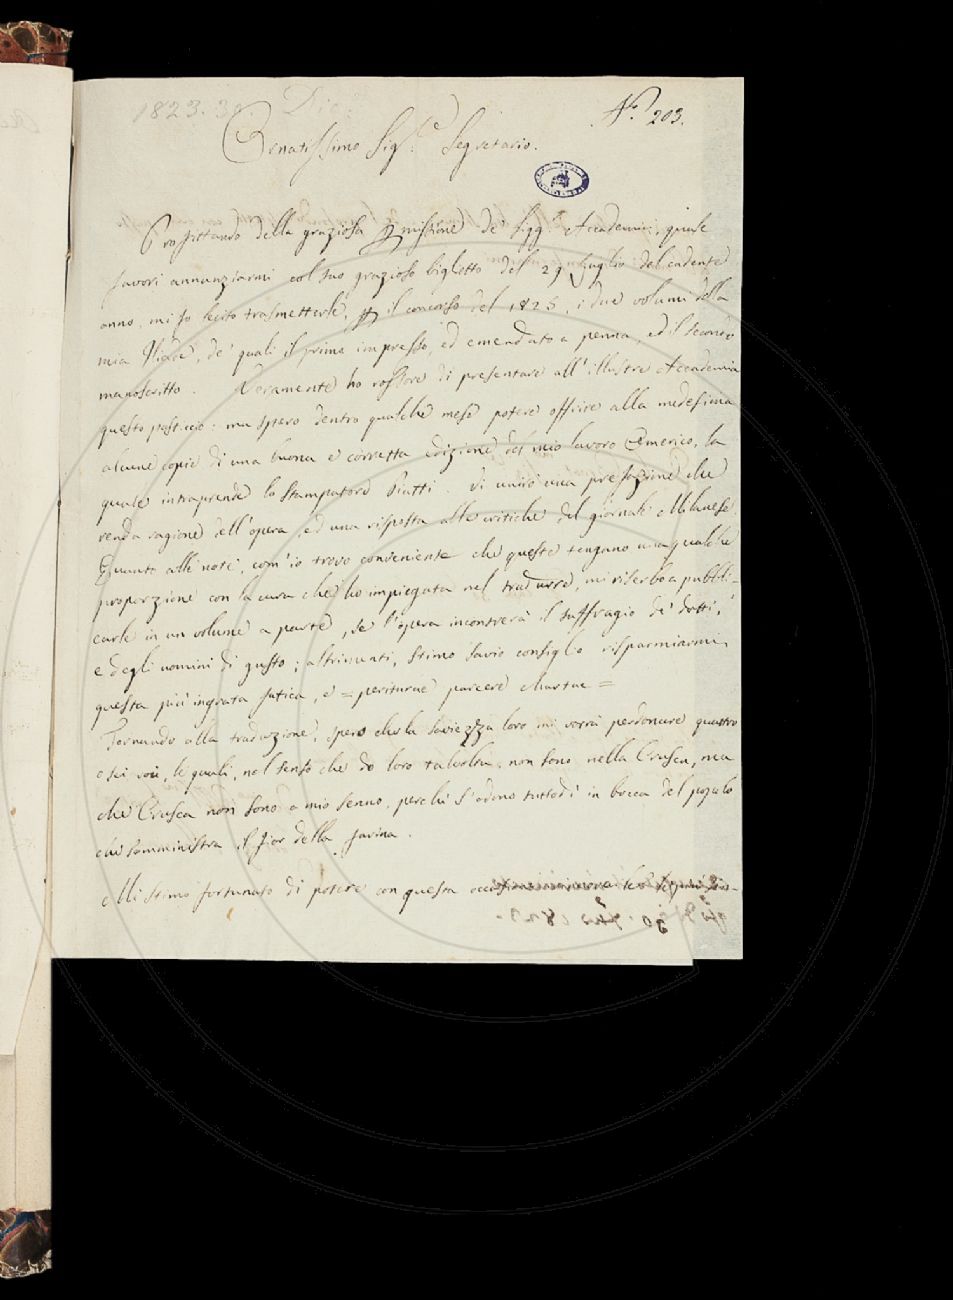 1823. 30. Dic.
N.° 203.
Ornatissimo Sig.re Segretario.
Profittando della graziosa permissione de' Sigg.i Accademici, quale
favorì annunziarmi col suo grazioso biglietto del 29 Luglio del cadente
anno, mi fo lecito trasmetterle, per il concorso del 1825, i due volumi della
mia Iliade, de' quali il primo impresso, ed emendato a penna, ed il secondo
manoscritto. Veramente ho rossore di presentare all'illustre Accademia
questo pasticcio: ma spero dentro qualche mese potere offrire alla medesima
alcune copie di una buona e corretta edizione del mio lavoro Omerico, la
quale intraprende lo Stampatore Piatti. Vi unirò una prefazione che
renda ragione dell'opera, ed una risposta alle critiche del giornale Milanese.
Quanto alle note, com'io trovo conveniente che queste tengano una qualche
proporzione con la cura che ho impiegata nel tradurre, mi riserbo a pubbli-
carle in un volume a parte, se l'opera incontrerà il suffragio de' dotti,
e degli uomini di gusto; altrimenti, stimo savio consiglio risparmiarmi
questa più ingrata fatica, e = periturae parcere chartae =
Tornando alla traduzione, spero che la saviezza loro mi vorrà perdonare quattro
o sei voci, le quali, nel senso che do loro talvolta, non sono nella Crusca, ma
che Crusca non sono a mio senno, perchè s'odono tuttodì in bocca del popolo
che somministra il fior della farina.
Mi stimo fortunato di potere con questa occasione